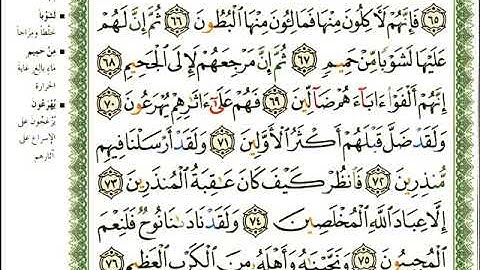 ٦٥ فَإِنَّهُمْ لَأَكِلُونَ مِنْهَا فَمَالِـُٔونَ مِنْهَا ٱلْبُطُونَ ٦٦ ثُمَّ إِنَّ لَهُمْ
عَلَيْهَا لَشَوْبًا مِّنْ حَمِيمٍ ٦٧ ثُمَّ إِنَّ مَرْجِعَهُمْ لَإِلَى ٱلْجَحِيمِ ٦٨
إِنَّهُمْ أَلْفَوْا۟ ءَابَآءَهُمْ ضَآلِّينَ ٦٩ فَهُمْ عَلَىٰٓ ءَاثَٰرِهِمْ يُهْرَعُونَ ٧٠
وَلَقَدْ ضَلَّ قَبْلَهُمْ أَكْثَرُ ٱلْأَوَّلِينَ ٧١ وَلَقَدْ أَرْسَلْنَا فِيهِم
مُّنذِرِينَ ٧٢ فَٱنظُرْ كَيْفَ كَانَ عَٰقِبَةُ ٱلْمُنذَرِينَ ٧٣
إِلَّا عِبَادَ ٱللَّهِ ٱلْمُخْلَصِينَ ٧٤ وَلَقَدْ نَادَىٰنَا نُوحٌ فَلَنِعْمَ
ٱلْمُجِيبُونَ ٧٥ وَنَجَّيْنَٰهُ وَأَهْلَهُۥ مِنَ ٱلْكَرْبِ ٱلْعَظِيمِ ٧٦
لَشَوْبًا
خلطًا ومزاجًا
مِنْ حَمِيمٍ
ماءٍ بالغٍ غاية
الحرارة
يُهْرَعُونَ
يُزعَجُون على
الإسراع على
آثارهم